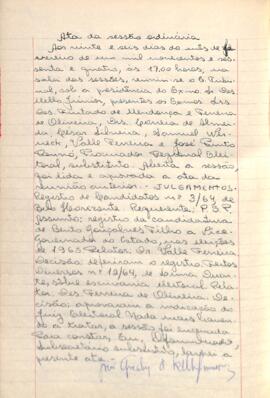 Ata da sessão ordinária
Aos vinte e seis dias do mês de fe
vereiro de um mil novecentos e ses-
senta e quatro, às 17,00 horas, na
sala das sessões, reuniu-se o E. Tribu-
nal, sob a presidência do Exmo Sr. Des.
Mello Júnior, presentes os Exmos Srs.
Des. Furtado de Mendonça e Ferreira
de Oliveira, Drs. de Almei-
da, Cezar Silveira,
Valle Ferreira e José Pinto
Procurador Regional Elei-
toral, substituto. Aberta a sessão
foi lida e aprovada a ata da
reunião anterior. - JULGAMENTOS:
Registro de Candidatos nº 3/64, de
Belo Horizonte. Requerente: P.S.P.
Assunto: registro da candidatura
de Bento Gonçalves Filho a Vice-
Governador do Estado, nas eleições
de 1965. Relator: Dr. Valle Ferreira.
Decisão: deferiram o registro. Feitos
Diversos nº 12/64, de Lima Duar-
te, sôbre escrivania eleitoral. Rela-
tor: Des. Ferreira de Oliveira. De-
cisão: aprovaram a indicação do
Juiz Eleitoral. Nada mais haven-
do a tratar, a sessão foi encerrada.
Para constar, Eu,
Subsecretário substituto, lavrei a
presente ata.